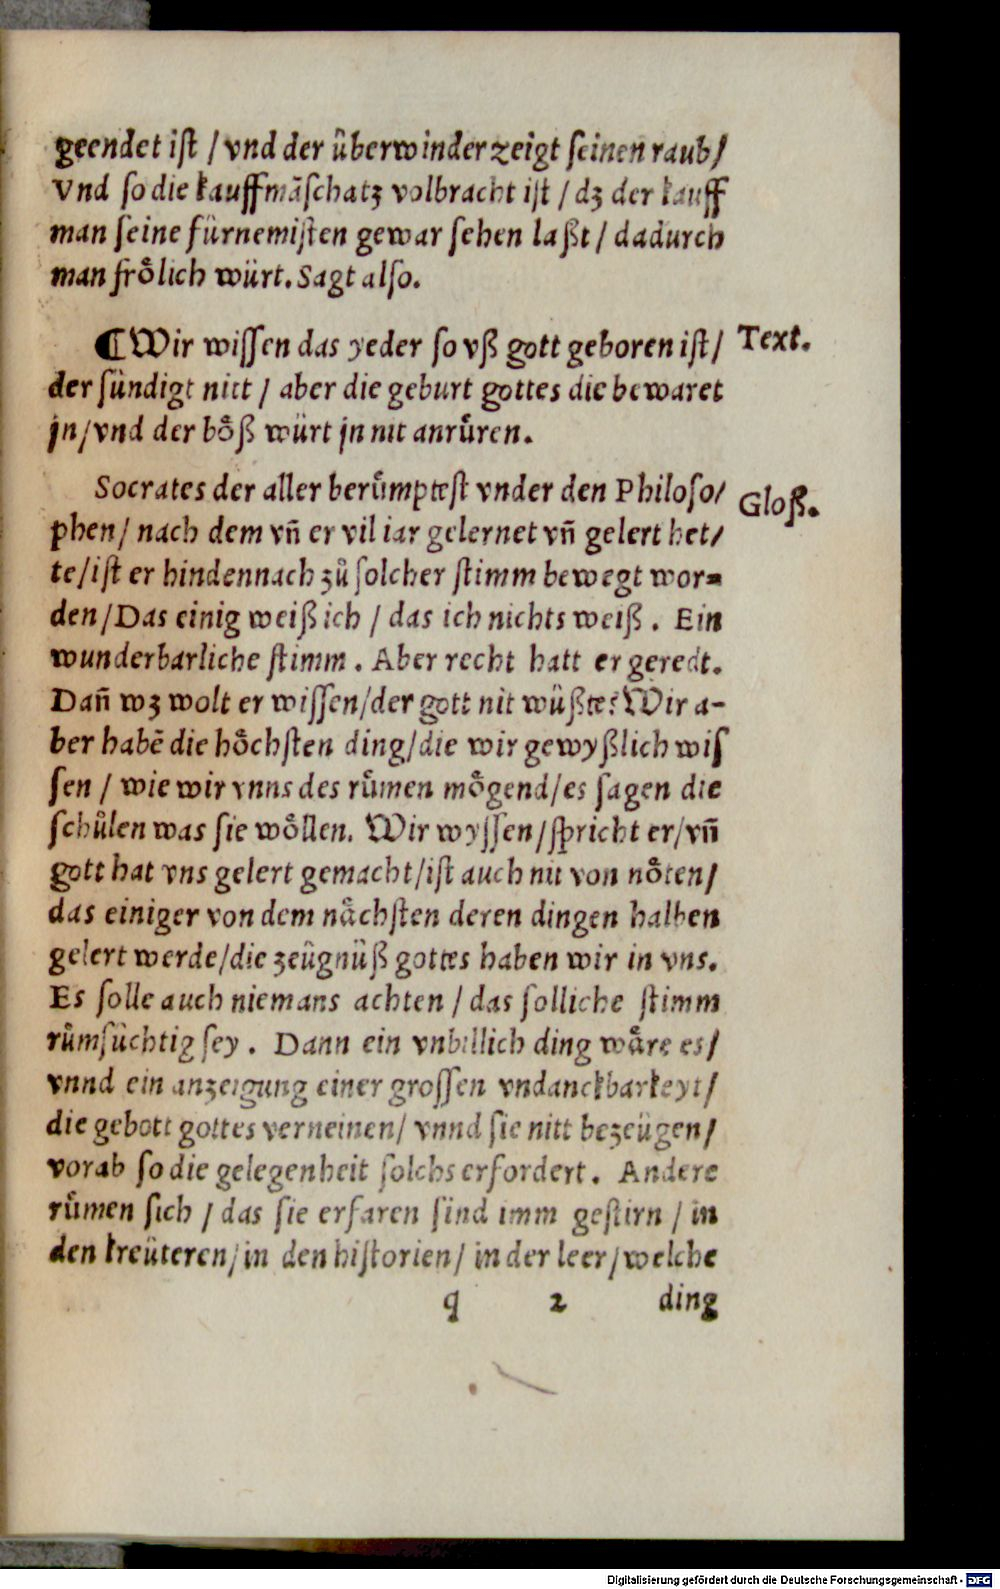 geendet iſt / vnd der uͤberwinder zeigt ſeinen raub/
Vnd ſo die kauffmãſchatʒ volbracht iſt / dʒ der kauff
man ſeine fürnemiſten gewar ſehen laßt / dadurch
man froͤlich würt. Sagt alſo.
¶ Wir wiſſen das yeder ſo vß gott geboren iſt/
Text.
der ſündigt nitt / aber die geburt gottes die bewaret
jn/vnd der boͤß würt jn nit anruͤren.
Socrates der aller beruͤmpteſt vnder den Philoſo/
Gloß.
phen/ nach dem vñ er vil iar gelernet vñ gelert het/
te/iſt er hindennach zuͦ ſolcher ſtimm bewegt wor⸗
den/Das einig weiß ich / das ich nichts weiß. Ein
wunderbarliche ſtimm. Aber recht hatt er geredt.
Dañ wʒ wolt er wiſſen/der gott nit wüßte? Wir a-
ber habẽ die hoͤchſten ding/die wir gewyßlich wiſ
ſen / wie wir vnns des ruͤmen moͤgend/es ſagen die
ſchuͦlen was ſie woͤllen. Wir wyſſen/ſpricht er/vñ
gott hat vns gelert gemacht/iſt auch nit von noͤten/
das einiger von dem naͤchſten deren dingen halben
gelert werde/die zeügnüß gottes haben wir in vns.
Es ſolle auch niemans achten / das ſolliche ſtimm
ruͦmſüchtig ſey. Dann ein vnbillich ding waͤre es/
vnnd ein anzeigung einer groſſen vndanckbarkeyt/
die gebott gottes verneinen/ vnnd ſie nitt bezeügen/
vorab ſo die gelegenheit ſolchs erfordert. Andere
ruͤmen ſich / das ſie erfaren ſind imm geſtirn / in
den kreüteren/in den hiſtorien/ in der leer/welche
q 2 ding
Digitalisierung gefördert durch die Deutsche Forschungsgemeinschaft - DFG